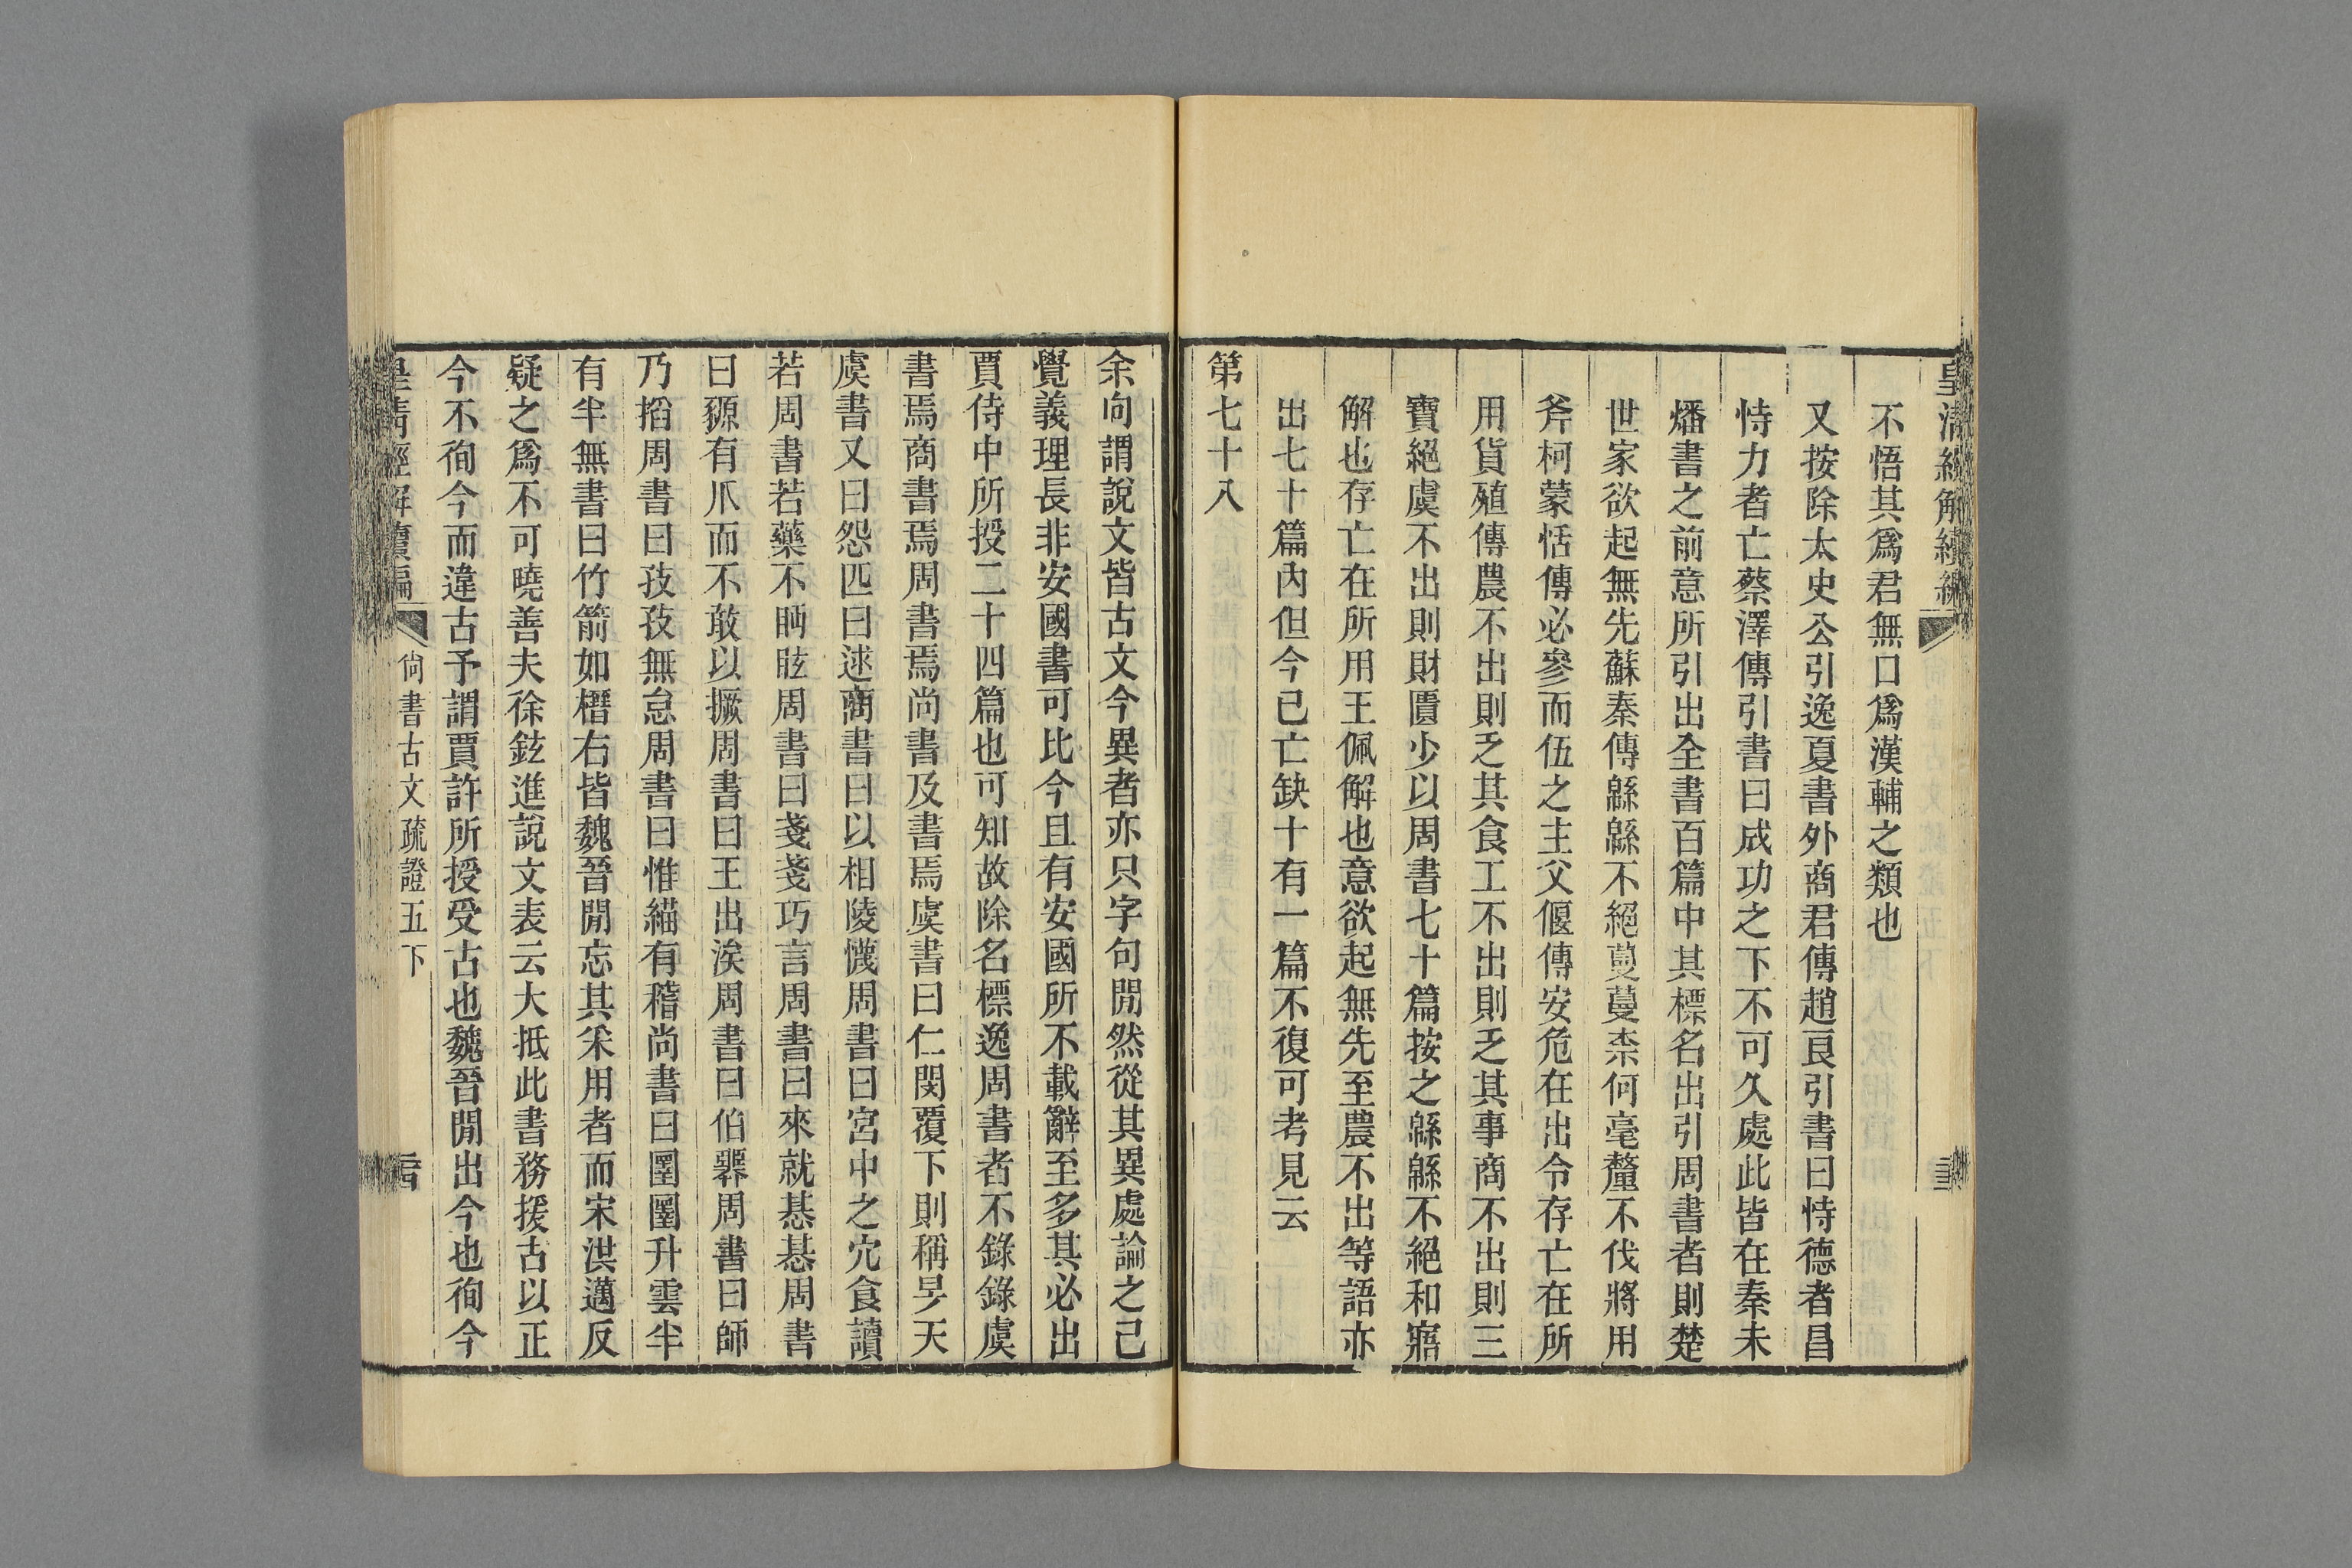 皇清經解續編
不悟其爲君無口爲漢輔之類也
又按除太史公引逸夏書外商君傳趙良引書曰恃德者昌
恃力者亡蔡澤傳引書曰成功之下不可久處此皆在秦未
燔書之前意所引出全書百篇中其標名出引周書者則楚
世家欲起無先蘇秦傳緜緜不絕蔓蔓柰何毫釐不伐將用
斧柯蒙恬傳必參而伍之主父偃傳安危在出令存亡在所
用貨殖傳農不出則乏其食工不出則乏其事商不出則三
寶絕虞不出則財匱少以周書七十篇按之緜緜不絕和寤
解也存亡在所用王佩解也意欲起無先至農不出等語亦
出七十篇內但今已亡缺十有一篇不復可考見云
第七十八
余向謂說文皆古文今異者亦只字句閒然從其異處論之己
覺義理長非安國書可比今且有安國所不載辭至多其必出
賈侍中所授二十四篇也可知故除名標逸周書者不錄錄虞
書焉商書焉周書焉尚書及書焉虞書曰仁閔覆下則稱旻天
虞書又曰怨匹曰逑商書曰以相陵懱周書曰宮中之宂食讀
若周書若藥不眄眩周書曰戔戔巧言周書曰來就惎惎周書
曰豲有爪而不敢以撅周書曰王出涘周書曰伯臩周書曰師
乃搯周書曰孜孜無怠周書曰惟緢有稽尚書曰圛圛升雲半
有半無書曰竹箭如榗右皆魏晉閒忘其采用者而宋洪邁反
疑之爲不可曉善夫徐鉉進說文表云大抵此書務援古以正
今不徇今而違古予謂賈許所授受古也魏晉閒出今也徇今
皇清經解續編 尙書古文疏證五下